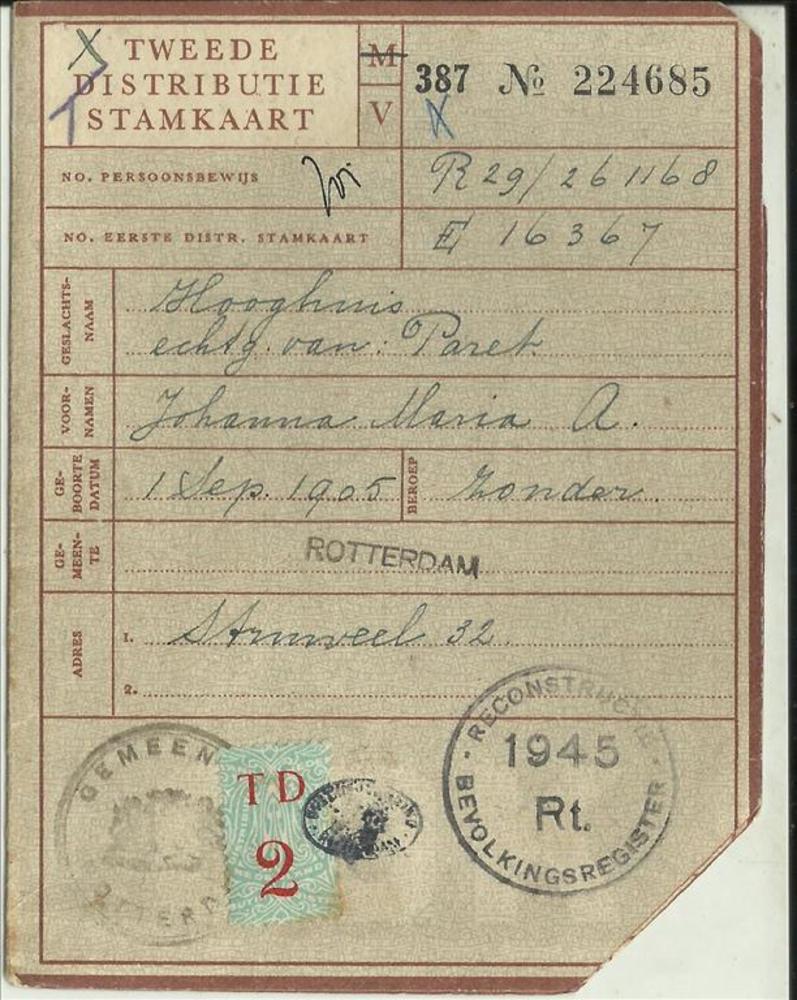 TWEEDE
DISTRIBUTIE
STAMKAART
M
V
387 № 224685
NO. PERSOONSBEWIJS
R 29/261168
NO. EERSTE DISTR. STAMKAART
E 16367
GESLACHTS-
NAAM
Hooghuis
echtg. van: Paret
VOOR-
NAMEN
Johanna Maria A.
GE-
BOORTE
DATUM
1 Sep. 1905
BEROEP
Zonder.
GE-
MEEN-
TE
ROTTERDAM
ADRES
1. Struweel 32.
2.
GEMEEN
TD
2
RECONSTRUCTIE
1945
Rt.
BEVOLKINGSREGISTER